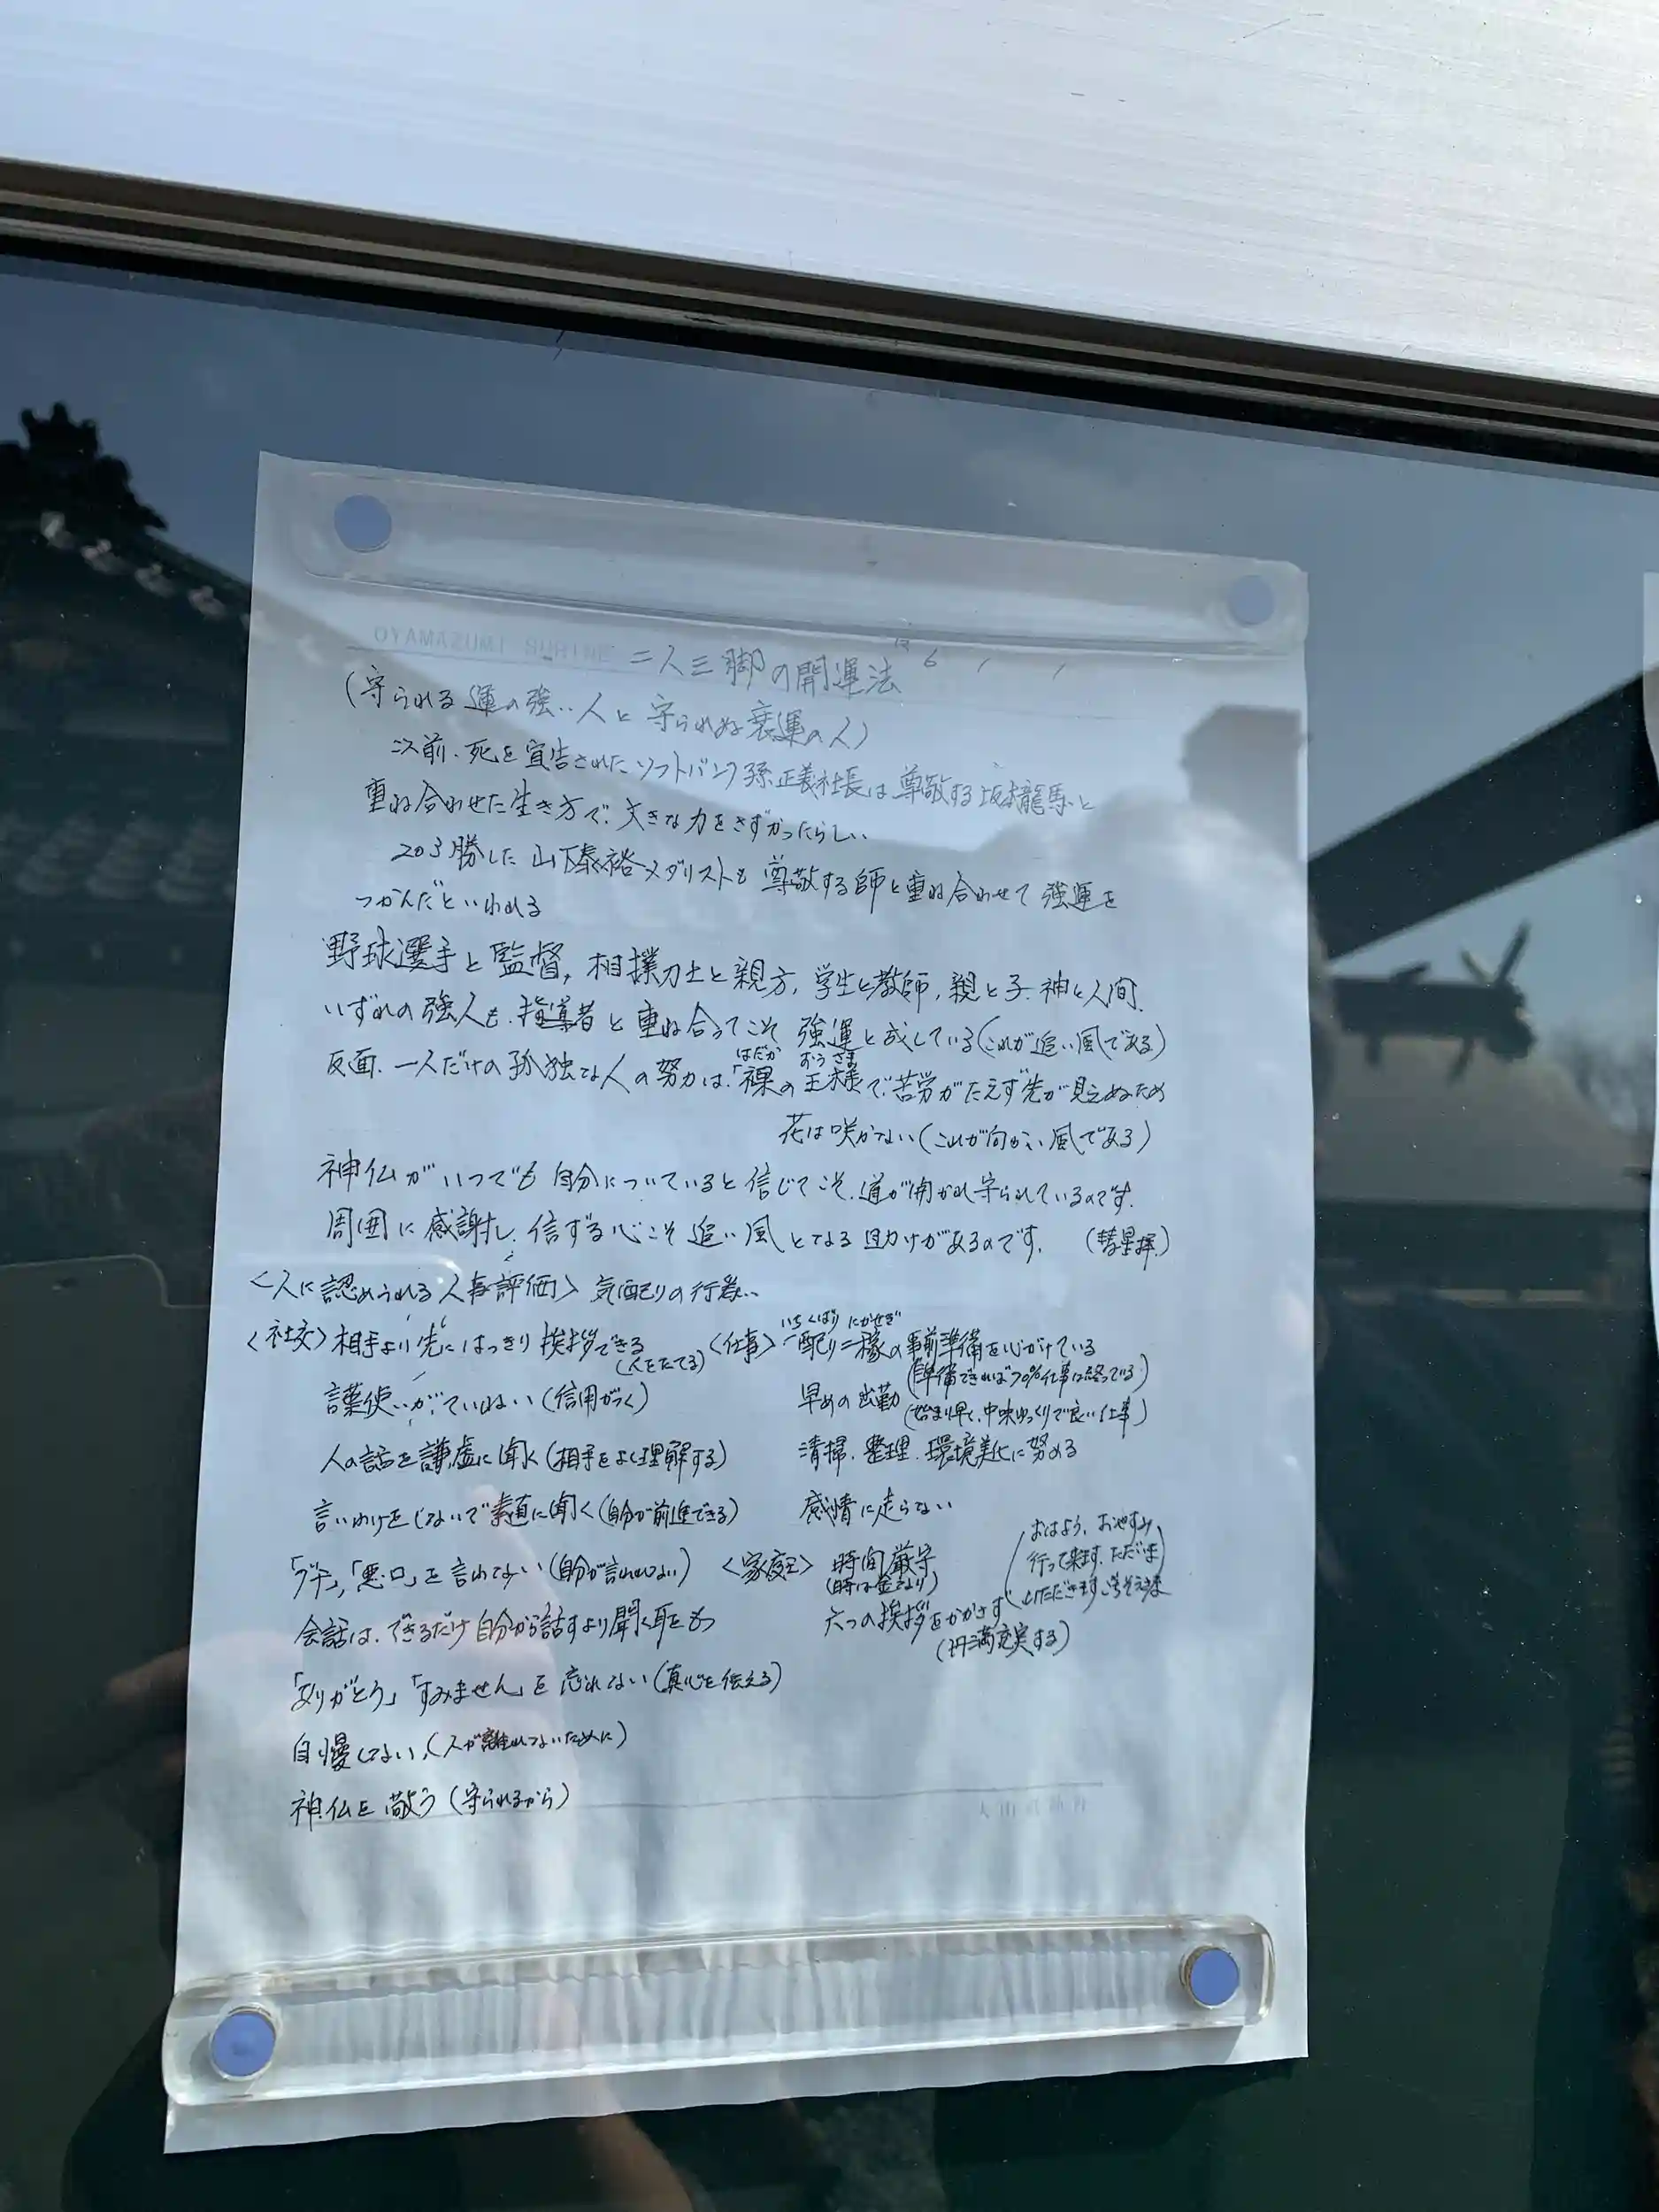 OYAMAZUMI SHRINE
二人三脚の開運法
(守られる運の強い人と守られぬ衰運の人)
以前、死を宣告されたソフトバンク孫正義社長は尊敬する坂本龍馬と
重ね合わせた生き方で、大きな力をさずかったらしい
203勝した山下泰裕メダリストも尊敬する師と重ね合わせて強運を
つかんだといわれる
野球選手と監督,相撲力士と親方,学生と教師,親と子.神と人間.
いずれの強人も.指導者と重ね合ってこそ強運と成している(これが追い風である)
反面.一人だけの孤独な人の努力は.「裸の王様で.苦労がたえず先が見えぬため
はだか おうさま
花は咲かない(これが向かい風である)
神仏がいつでも自分についていると信じてこそ.道が開かれ守られているのです.
周囲に感謝し.信ずる心こそ追い風となる助けがあるのです.
<人に認められる人事評価>気配りの行為..
<社交>相手より先にはっきり挨拶できる
(人をたてる)
言葉使いがていねい(信用がつく)
人の話を謙虚に聞く(相手をよく理解する)
言いわけをしないで素直に聞く(自分が前進できる)
「グチ」,「悪口」を言わない(自分が言われない)
会話は.できるだけ自分から話すより聞く耳をもつ
「ありがとう」「すみません」を忘れない(真心を伝える)
自慢しない,(人が離れないために)
神仏を敬う(守られるから)
いちくばり にかせぎ
<仕事>一配り二稼の事前準備を心がけている
(準備できれば70%仕事は終っている)
早めの出勤(始まり早く、中味ゆっくりで良い仕事)
清掃.整理.環境美化に努める
感情に走らない
<家庭>時間厳守
(時は金なり)
六つの挨拶をかかさず
(円満充実する)
おはよう.おやすみ
行って来ます.ただいま
いただきます.ごちそうさま